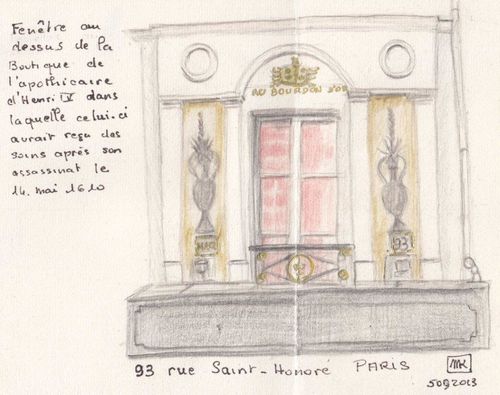 Fenêtre au
dessus de la
Boutique de
l'apothicaire
d'Henri IV dans
laquelle celui-ci
aurait reçu des
soins après son
assassinat le
14 mai 1610
AU BOURDON D'OR
93
93 rue Saint-Honoré PARIS
MK